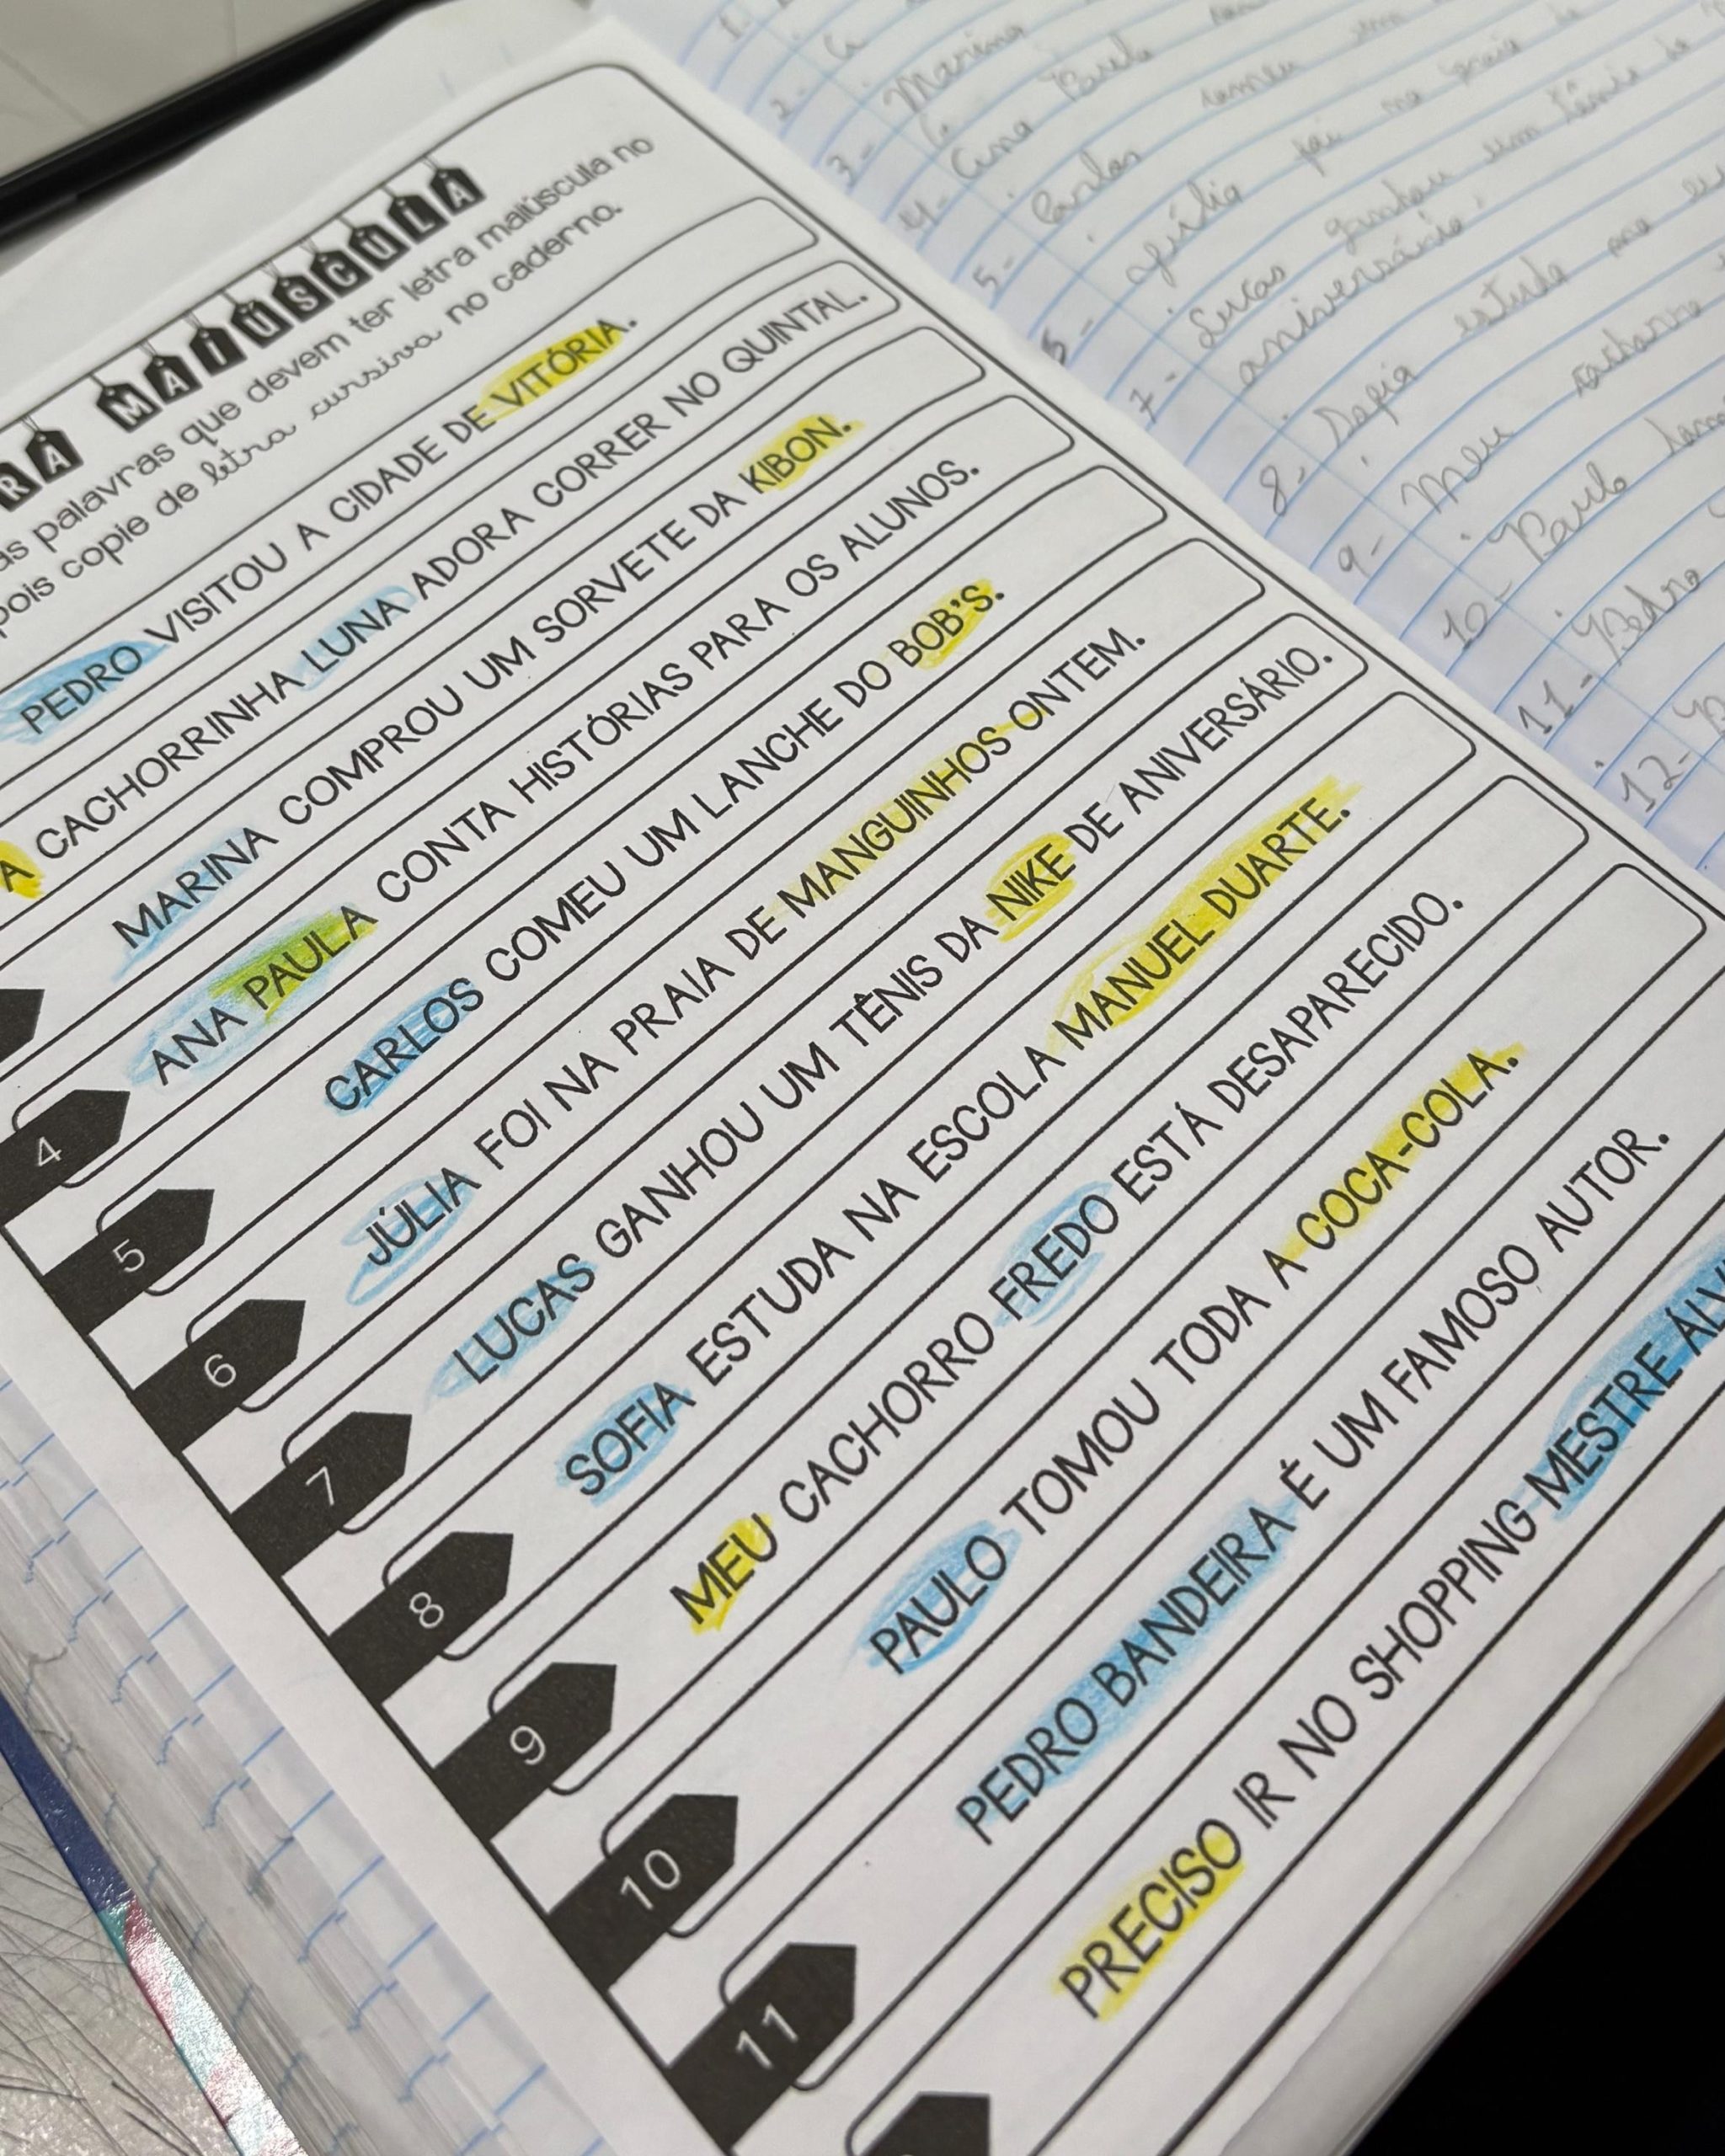 RA MAIÚSCULA
as palavras que devem ter letra maiúscula no
pois copie de letra cursiva no caderno.
PEDRO VISITOU A CIDADE DE VITÓRIA.
A CACHORRINHA LUNA ADORA CORRER NO QUINTAL.
MARINA COMPROU UM SORVETE DA KIBON.
4 ANA PAULA CONTA HISTÓRIAS PARA OS ALUNOS.
5 CARLOS COMEU UM LANCHE DO BOB'S.
6 JÚLIA FOI NA PRAIA DE MANGUINHOS ONTEM.
7 LUCAS GANHOU UM TÊNIS DA NIKE DE ANIVERSÁRIO.
8 SOFIA ESTUDA NA ESCOLA MANUEL DUARTE.
9 MEU CACHORRO FREDO ESTÁ DESAPARECIDO.
10 PAULO TOMOU TODA A COCA-COLA.
11 PEDRO BANDEIRA É UM FAMOSO AUTOR.
PRECISO IR NO SHOPPING MESTRE ÁLV
1-
2-
3- Marina
4- Ana Paula
5- Carlos comeu um
Júlia foi na praia de
7- Lucas ganhou um tênis da
aniversário.
8- Sofia estuda
9- Meu cachorro
10- Paulo
11- Pedro
12-